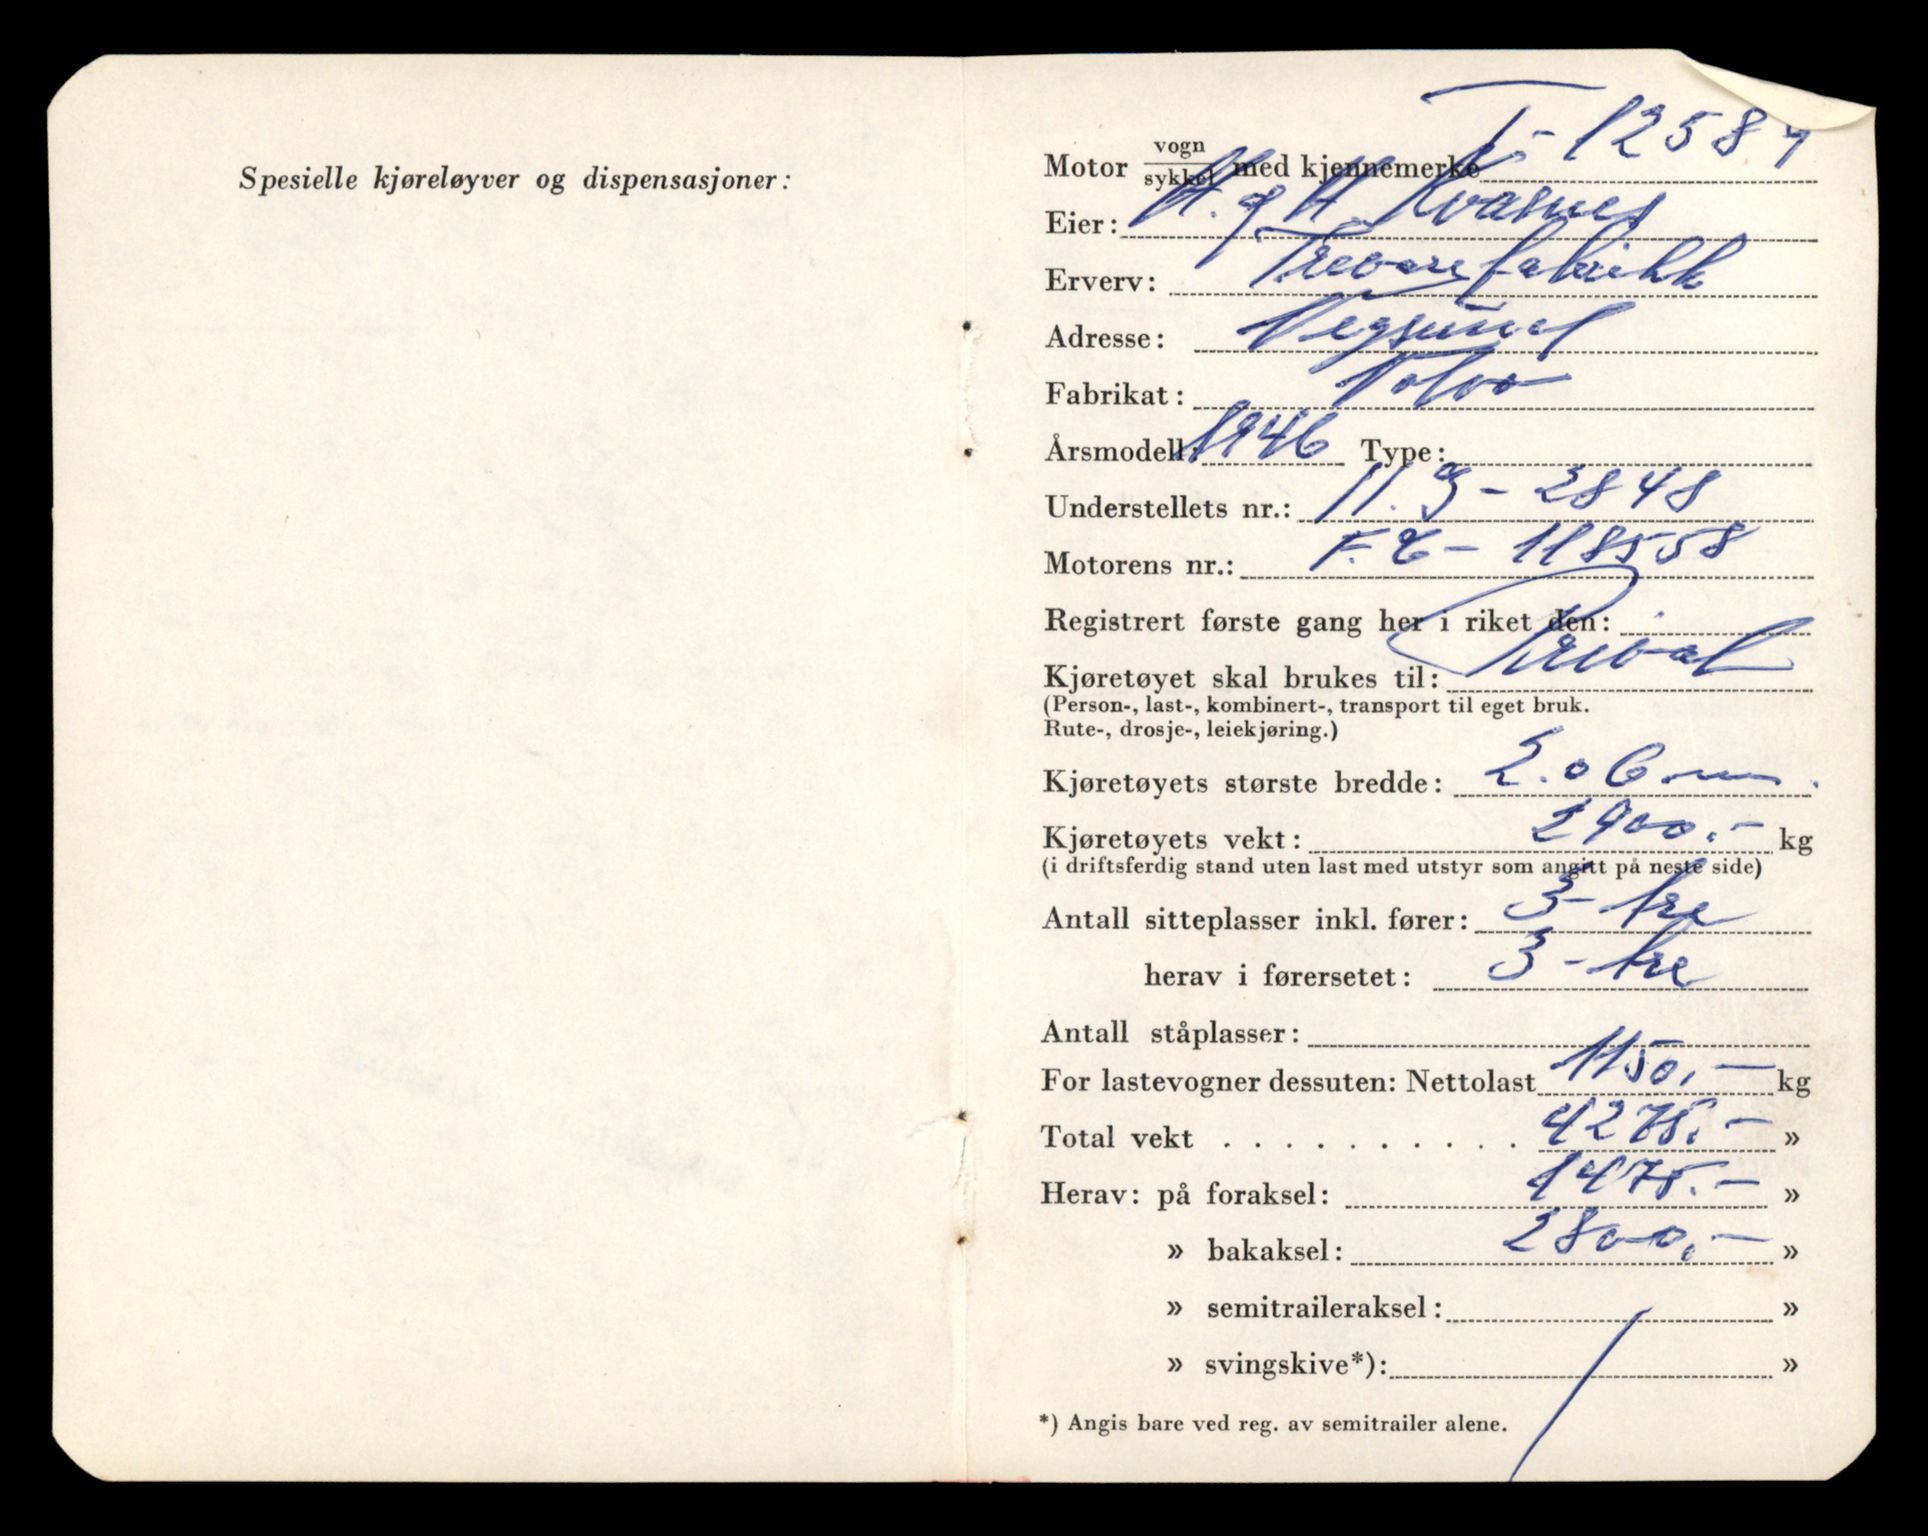 Spesielle kjøreløyver og dispensasjoner:
Motor vogn/sykkel med kjennemerke T-12584
Eier: H. og H. Kvasnes
Erverv: Trevarefabrikk
Adresse: Vegsund
Fabrikat: Volvo
Årsmodell: 1946 Type:
Understellets nr.: 11.9-2848
Motorens nr.: F.E-118558
Registrert første gang her i riket den:
Kjøretøyet skal brukes til: Privat
(Person-, last-, kombinert-, transport til eget bruk.
Rute-, drosje-, leiekjøring.)
Kjøretøyets største bredde: 2.06 m.
Kjøretøyets vekt: 2900.- kg
(i driftsferdig stand uten last med utstyr som angitt på neste side)
Antall sitteplasser inkl. fører: 3-tre
herav i førersetet: 3-tre
Antall ståplasser:
For lastevogner dessuten: Nettolast 1150,- kg
Total vekt . . . . . . . . . . 4275.- »
Herav: på foraksel: 1475.- »
» bakaksel: 2800,- »
» semitraileraksel: »
» svingskive*): »
*) Angis bare ved reg. av semitrailer alene.